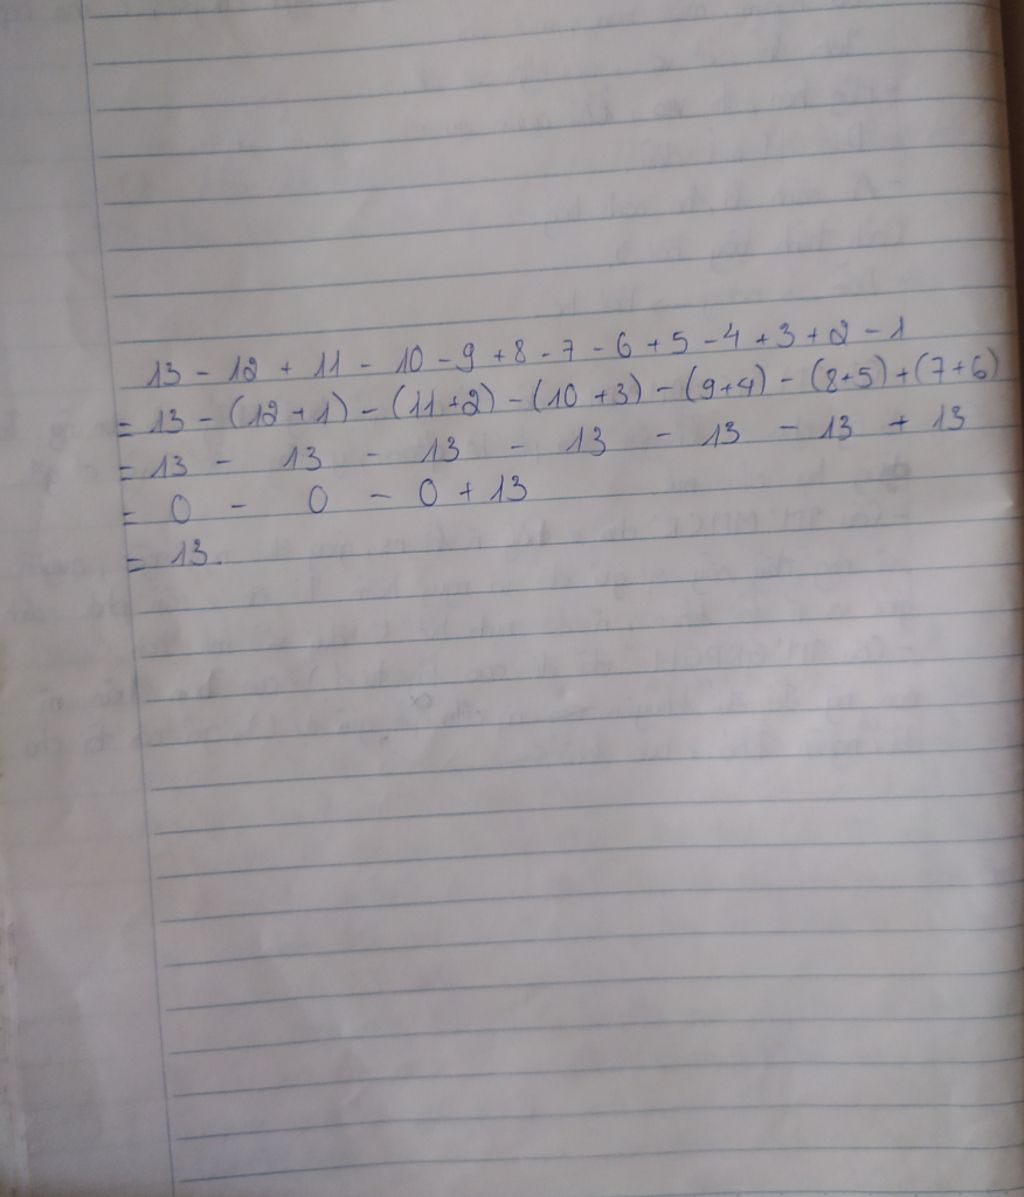 13 - 12 + 11 - 10 - 9 + 8 - 7 - 6 + 5 - 4 + 3 + 2 - 1
= 13 - (12 + 1) - (11 + 2) - (10 + 3) - (9 + 4) - (8 + 5) + (7 + 6)
= 13 - 13 - 13 - 13 - 13 - 13 + 13
= 0 - 0 - 0 + 13
= 13.